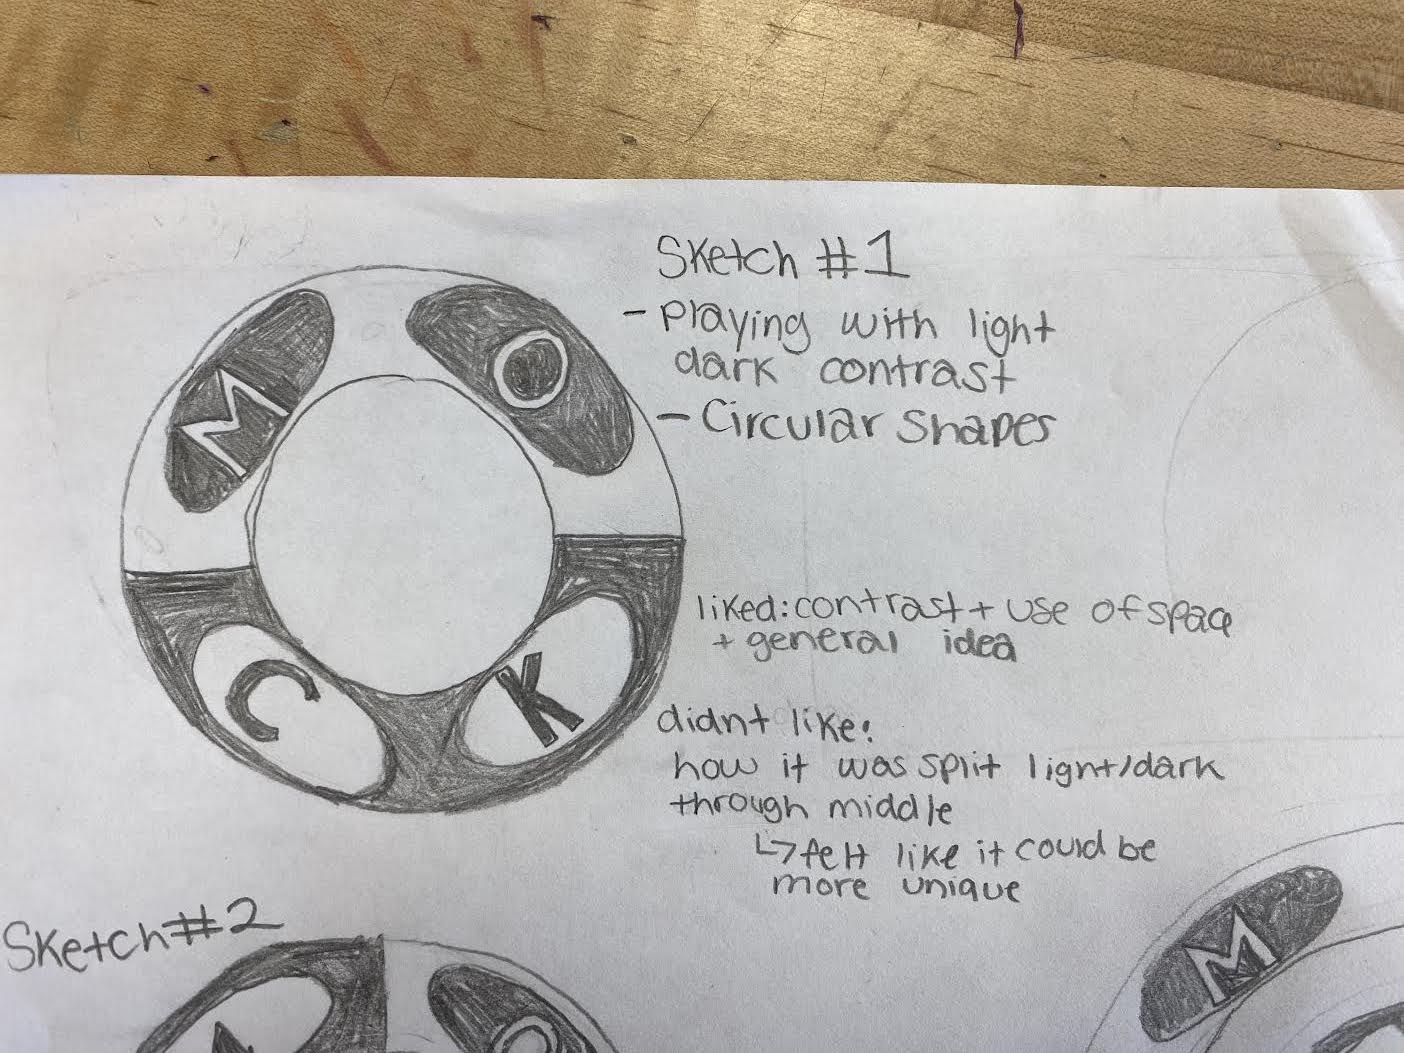 Sketch #1
- Playing with light
dark contrast
- Circular shapes
M O
C K
liked: contrast + use of space
+ general idea
didnt like:
how it was split light/dark
through middle
↳ felt like it could be
more unique
Sketch #2
M